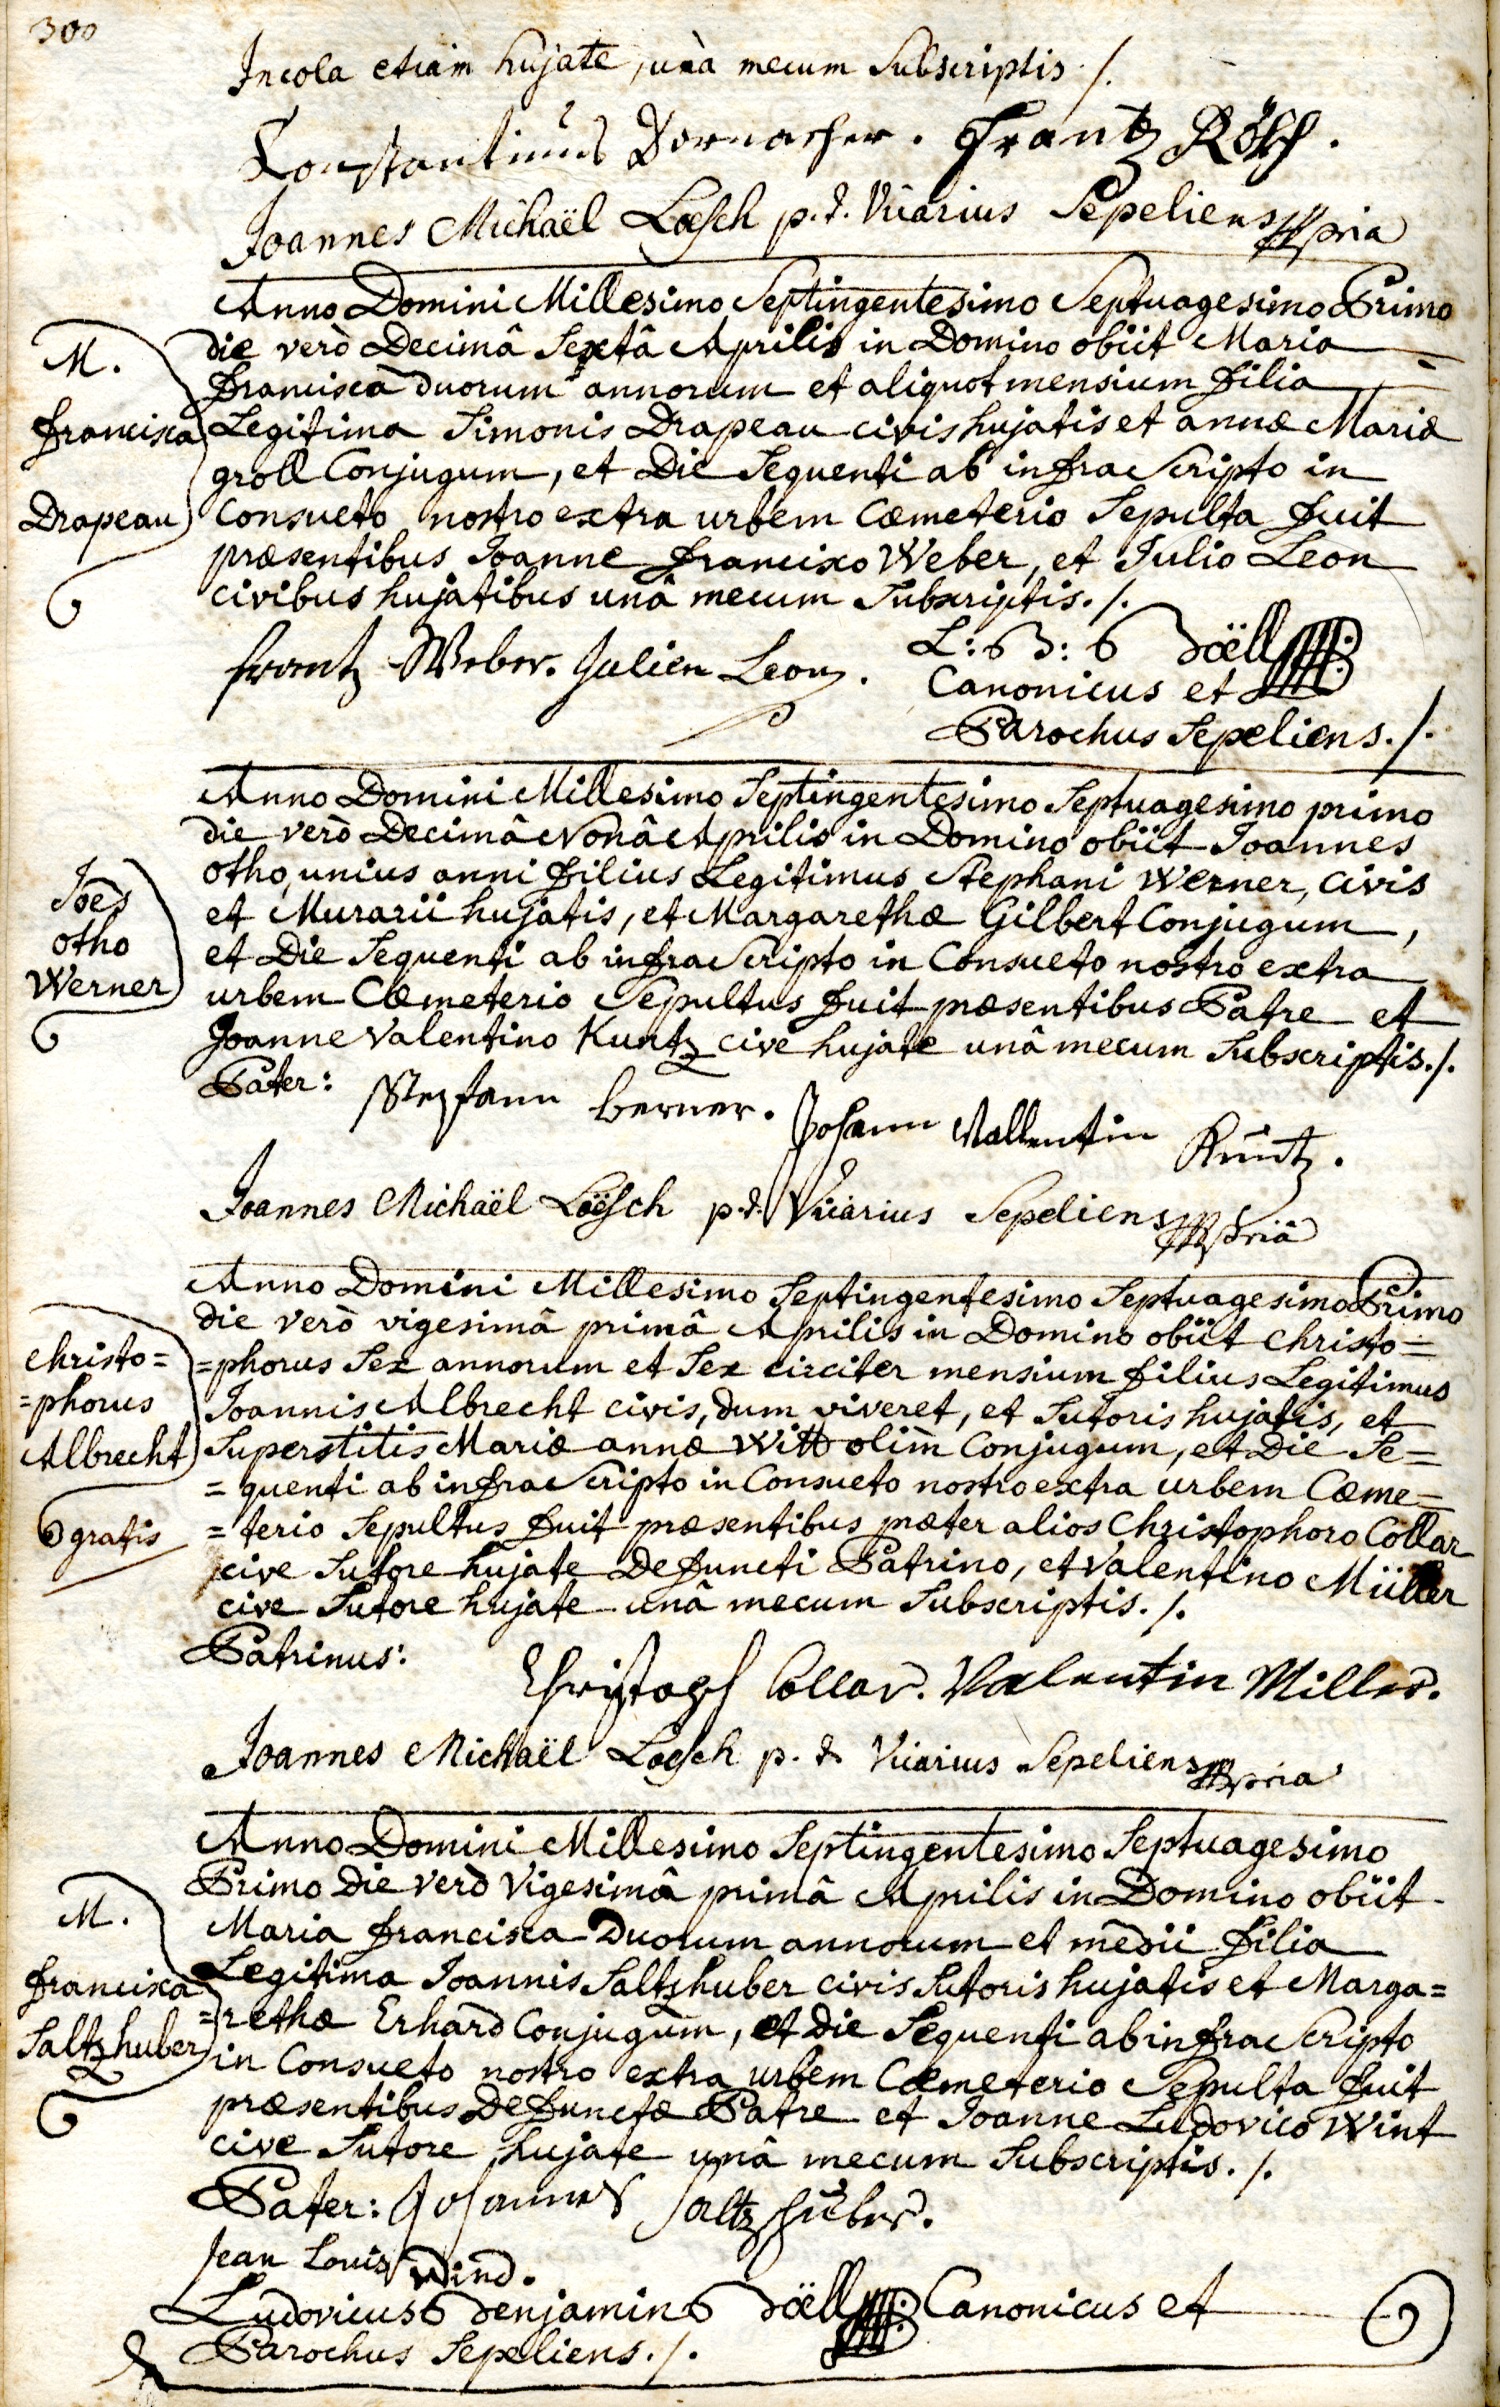 300
Incola etiam hujate, unà mecum Subscriptis ./.
Constantinus Dornacher. Frantz Rösch.
Joannes Michaël Loesch p.t. Vicarius Sepeliens mpria
Anno Domini Millesimo Septingentesimo Septuagesimo Primo
die verò Decimâ Sextâ Aprilis in Domino obiit Maria
M.
francisca duorum annorum et aliquot mensium filia
francisca
Legitima Simonis Drapeau civis hujatis et annæ Mariæ
groll Conjugum, et Die Sequenti ab infra Scripto in
Drapeau
Consueto nostro extra urbem Cœmeterio Sepulta fuit
præsentibus Joanne francisco Weber, et Julio Leon
civibus hujatibus unâ mecum Subscriptis ./.
frantz Weber. Julien Leon.
L: B: Boëll
Canonicus et
Parochus Sepeliens ./.
Anno Domini Millesimo Septingentesimo Septuagesimo primo
die verò Decimâ Nonâ Aprilis in Domino obiit Joannes
Joes
otho
Werner
otho, unius anni filius Legitimus Stephani Werner, civis
et Murarii hujatis, et Margarethæ Gilbert Conjugum,
et Die Sequenti ab infra Scripto in Consueto nostro extra
urbem Cœmeterio Sepultus fuit præsentibus Patre et
Joanne Valentino Kuntz cive hujate unâ mecum Subscriptis ./.
Pater: Stepfann berner. Johann Vallentin Kuntz.
Joannes Michaël Loësch p.t. Vicarius Sepeliens mpriâ
Anno Domini Millesimo Septingentesimo Septuagesimo Primo
die verò vigesimâ primâ Aprilis in Domino obiit Christo=
Christo=
=phorus
Albrecht
gratis
=phorus Sex annorum et Sex circiter mensium filius Legitimus
Joannis Albrecht civis, dum viveret, et Sutoris hujatis, et
Superstitis Mariæ annæ Witt olim Conjugum, et Die Se=
=quenti ab infra Scripto in Consueto nostro extra urbem Cœme=
=terio Sepultus fuit præsentibus præter alios Christophoro Collar
cive Sutore hujate Defuncti Patrino, et Valentino Müller
cive Sutore hujate unâ mecum Subscriptis ./.
Patrinus: Christoph Collar. Valentin Miller.
Joannes Michaël Loesch p.t. Vicarius Sepeliens mpria
Anno Domini Millesimo Septingentesimo Septuagesimo
Primo Die verò Vigesimâ primâ Aprilis in Domino obiit
M.
francisca
Saltzhuber
Maria francisca Duorum annorum et medii filia
Legitima Joannis Saltzhuber civis Sutoris hujatis et Marga=
=rethæ Erhard Conjugum, et Die Sequenti ab infra Scripto
in Consueto nostro extra urbem Cœmeterio Sepulta fuit
præsentibus Defunctæ Patre et Joanne Ludovico Wint
cive Sutore hujate unâ mecum Subscriptis ./.
Pater: Johannes Saltzhuber.
Jean Louis Wind.
Ludovicus Benjamin Boëll Canonicus et
Parochus Sepeliens ./.